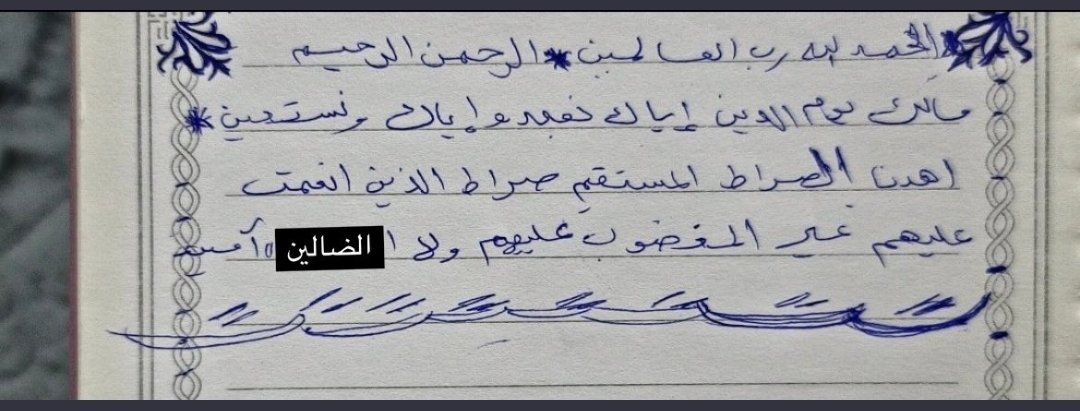 الحمد لله رب العالمين * الرحمن الرحيم
مالك يوم الدين إياك نعبد وإياك نستعين *
اهدنا الصراط المستقيم صراط الذين انعمت
عليهم غير المغضوب عليهم ولا ا الضالين " آمين